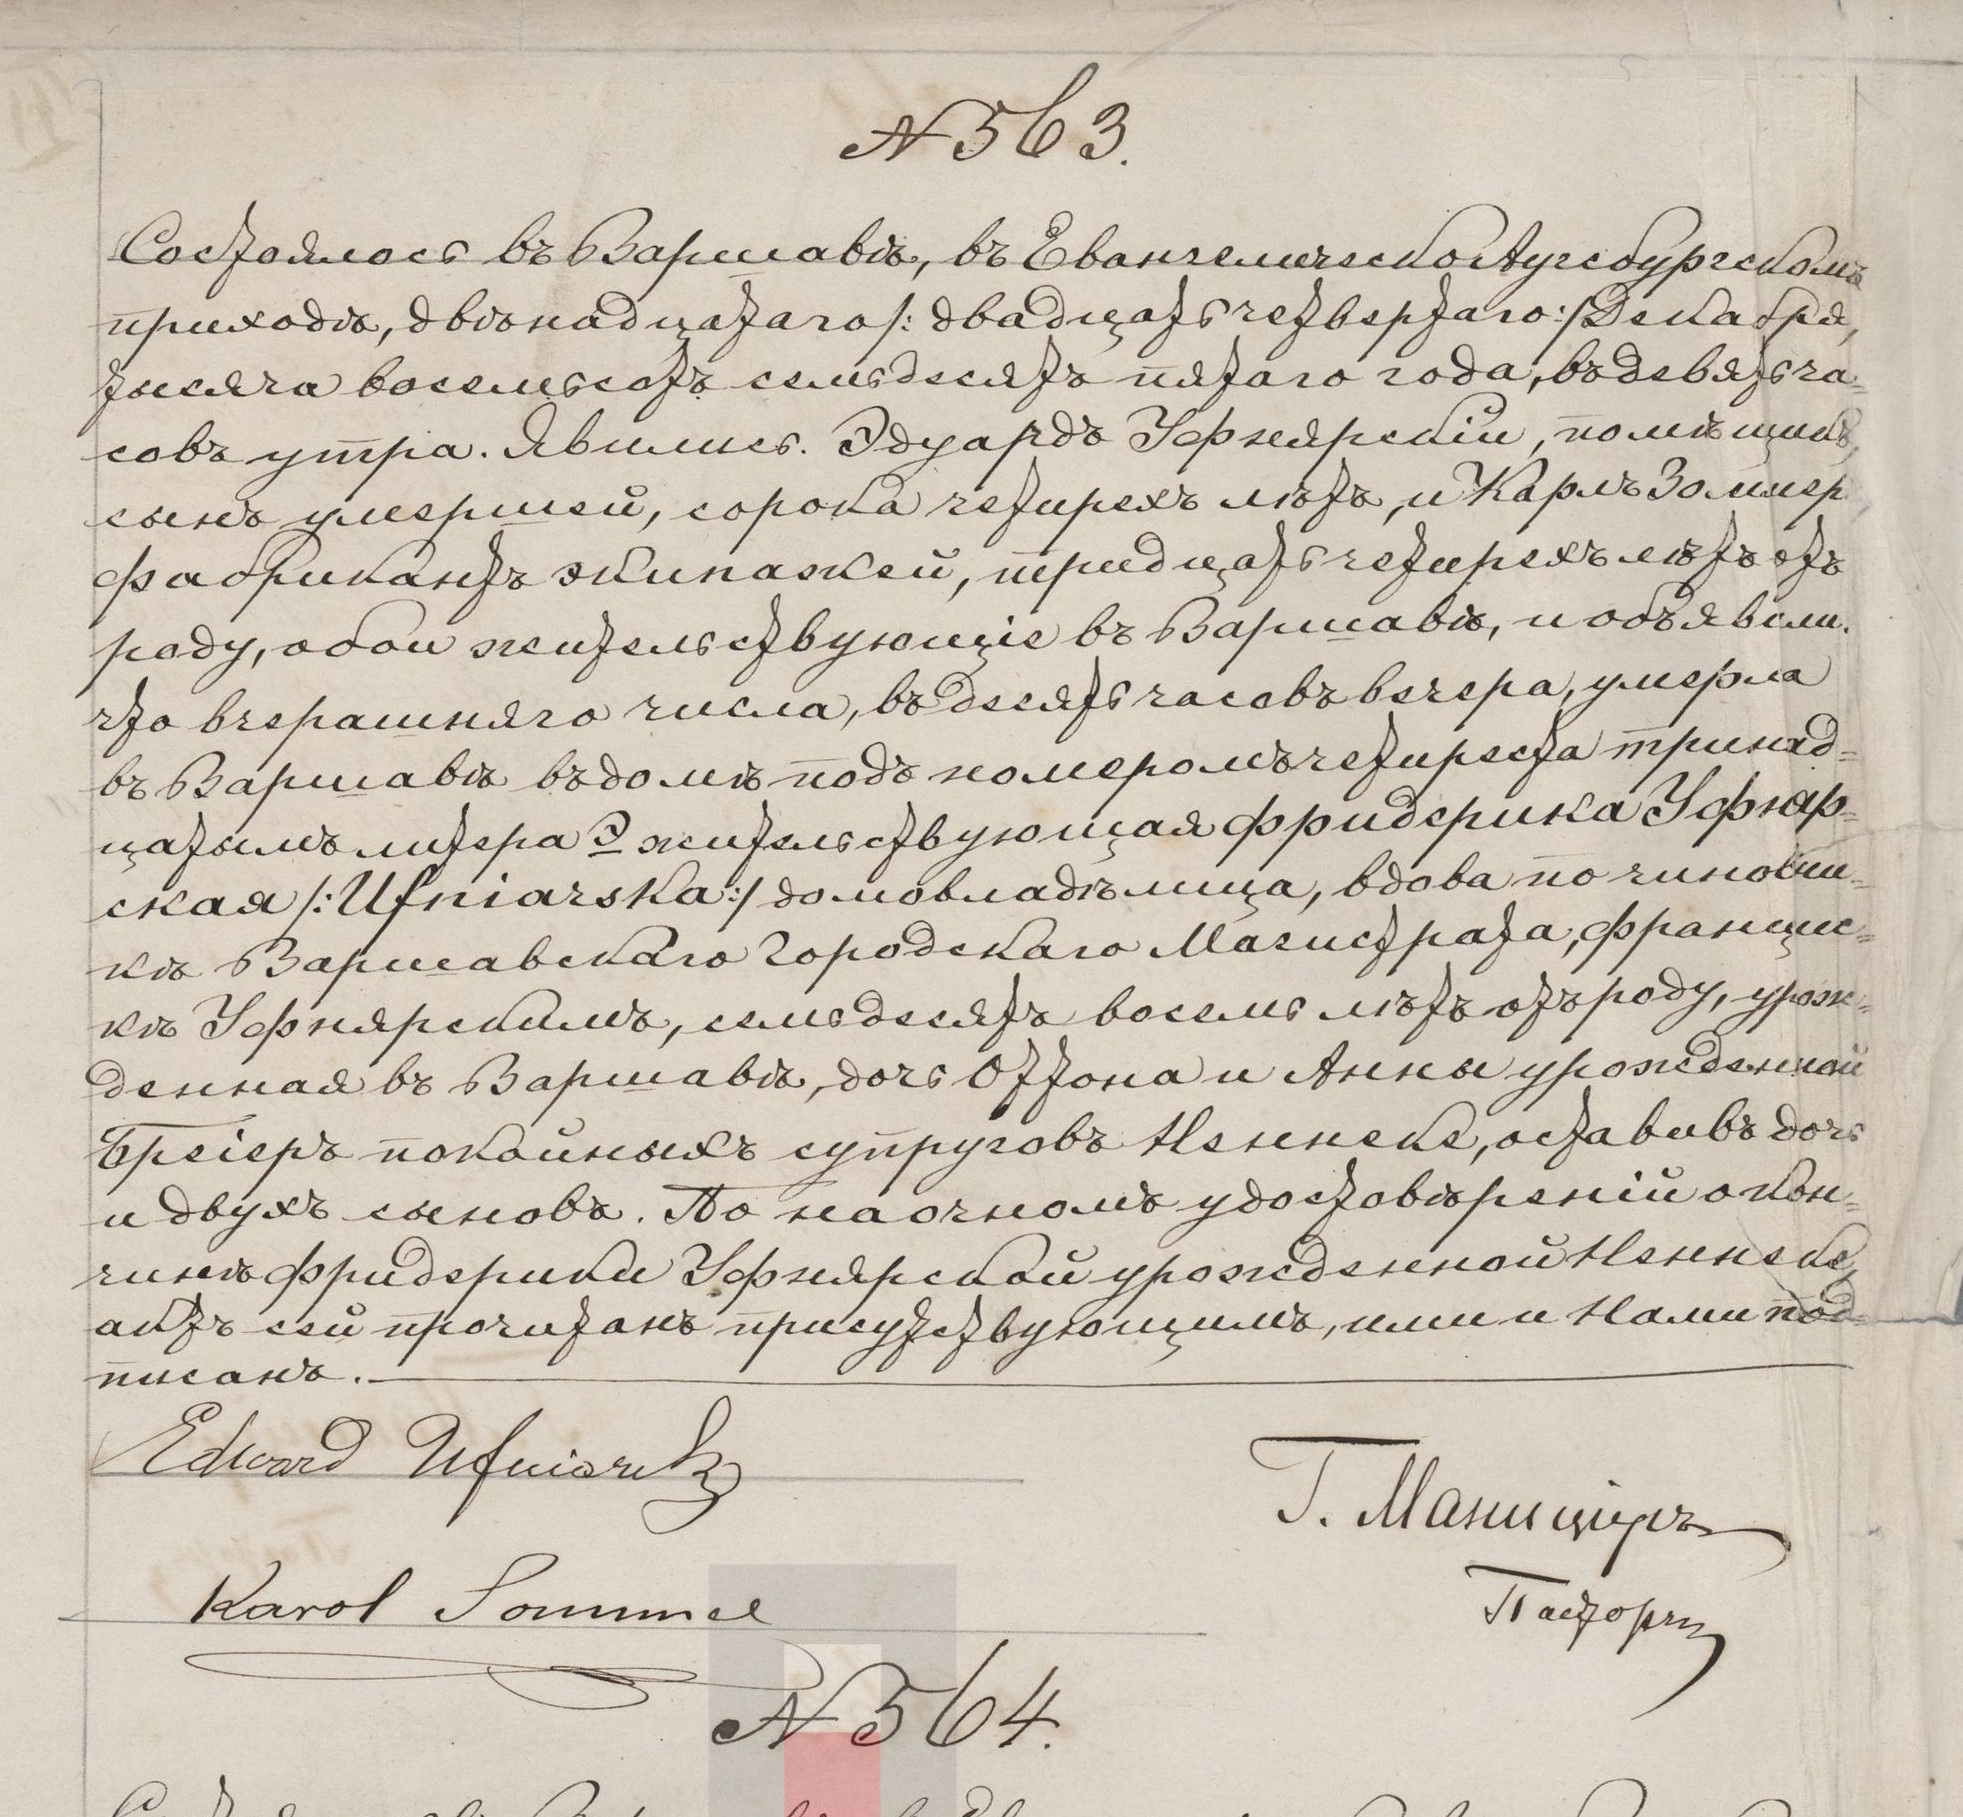 N 563.
Состоялось въ Варшавѣ, въ ЕвангелическоАугсбургскомъ
приходѣ, двѣнадцатаго /: двадцать четвертаго :/ Декабря,
тысяча восемьсотъ семьдесятъ пятаго года, въ девять ча=
совъ утра. Явились. Эдуардъ Уфнярскій, помѣщикъ,
сынъ умершей, сорока четырехъ лѣтъ, и Карлъ Зоммер
фабрикантъ экипажей, тридцать четырехъ лѣтъ отъ
роду, обои жительствующіе въ Варшавѣ, и объявили.
что вчерашняго числа, въ десять часовъ вечера, умерла
въ Варшавѣ въ домѣ подъ номеромъ четыреста тринад=
цатымъ литера Э жительствующая Фридерика Уфняр=
ская /: Ufniarska :/ домовладѣлица, вдова по чиновни=
кѣ Варшавскаго Городскаго Магистрата, Францис=
кѣ Уфнярскимъ, семьдесятъ восемь лѣтъ отъ роду, урож=
денная въ Варшавѣ, дочь Оттона и Анны урожденной
Брейеръ покойныхъ супруговъ Неннеке, оставивъ дочь
и двухъ сыновъ. По наочномъ удостовѣреній о кон=
чинѣ Фридерики Уфнярской урожденной Неннеке,
актъ сей прочитанъ присутствующимъ, ими и Нами под=
писанъ.
Edward Ufniarski
Г. Маницiусъ
Karol Sommer
Пасторъ
N 564.